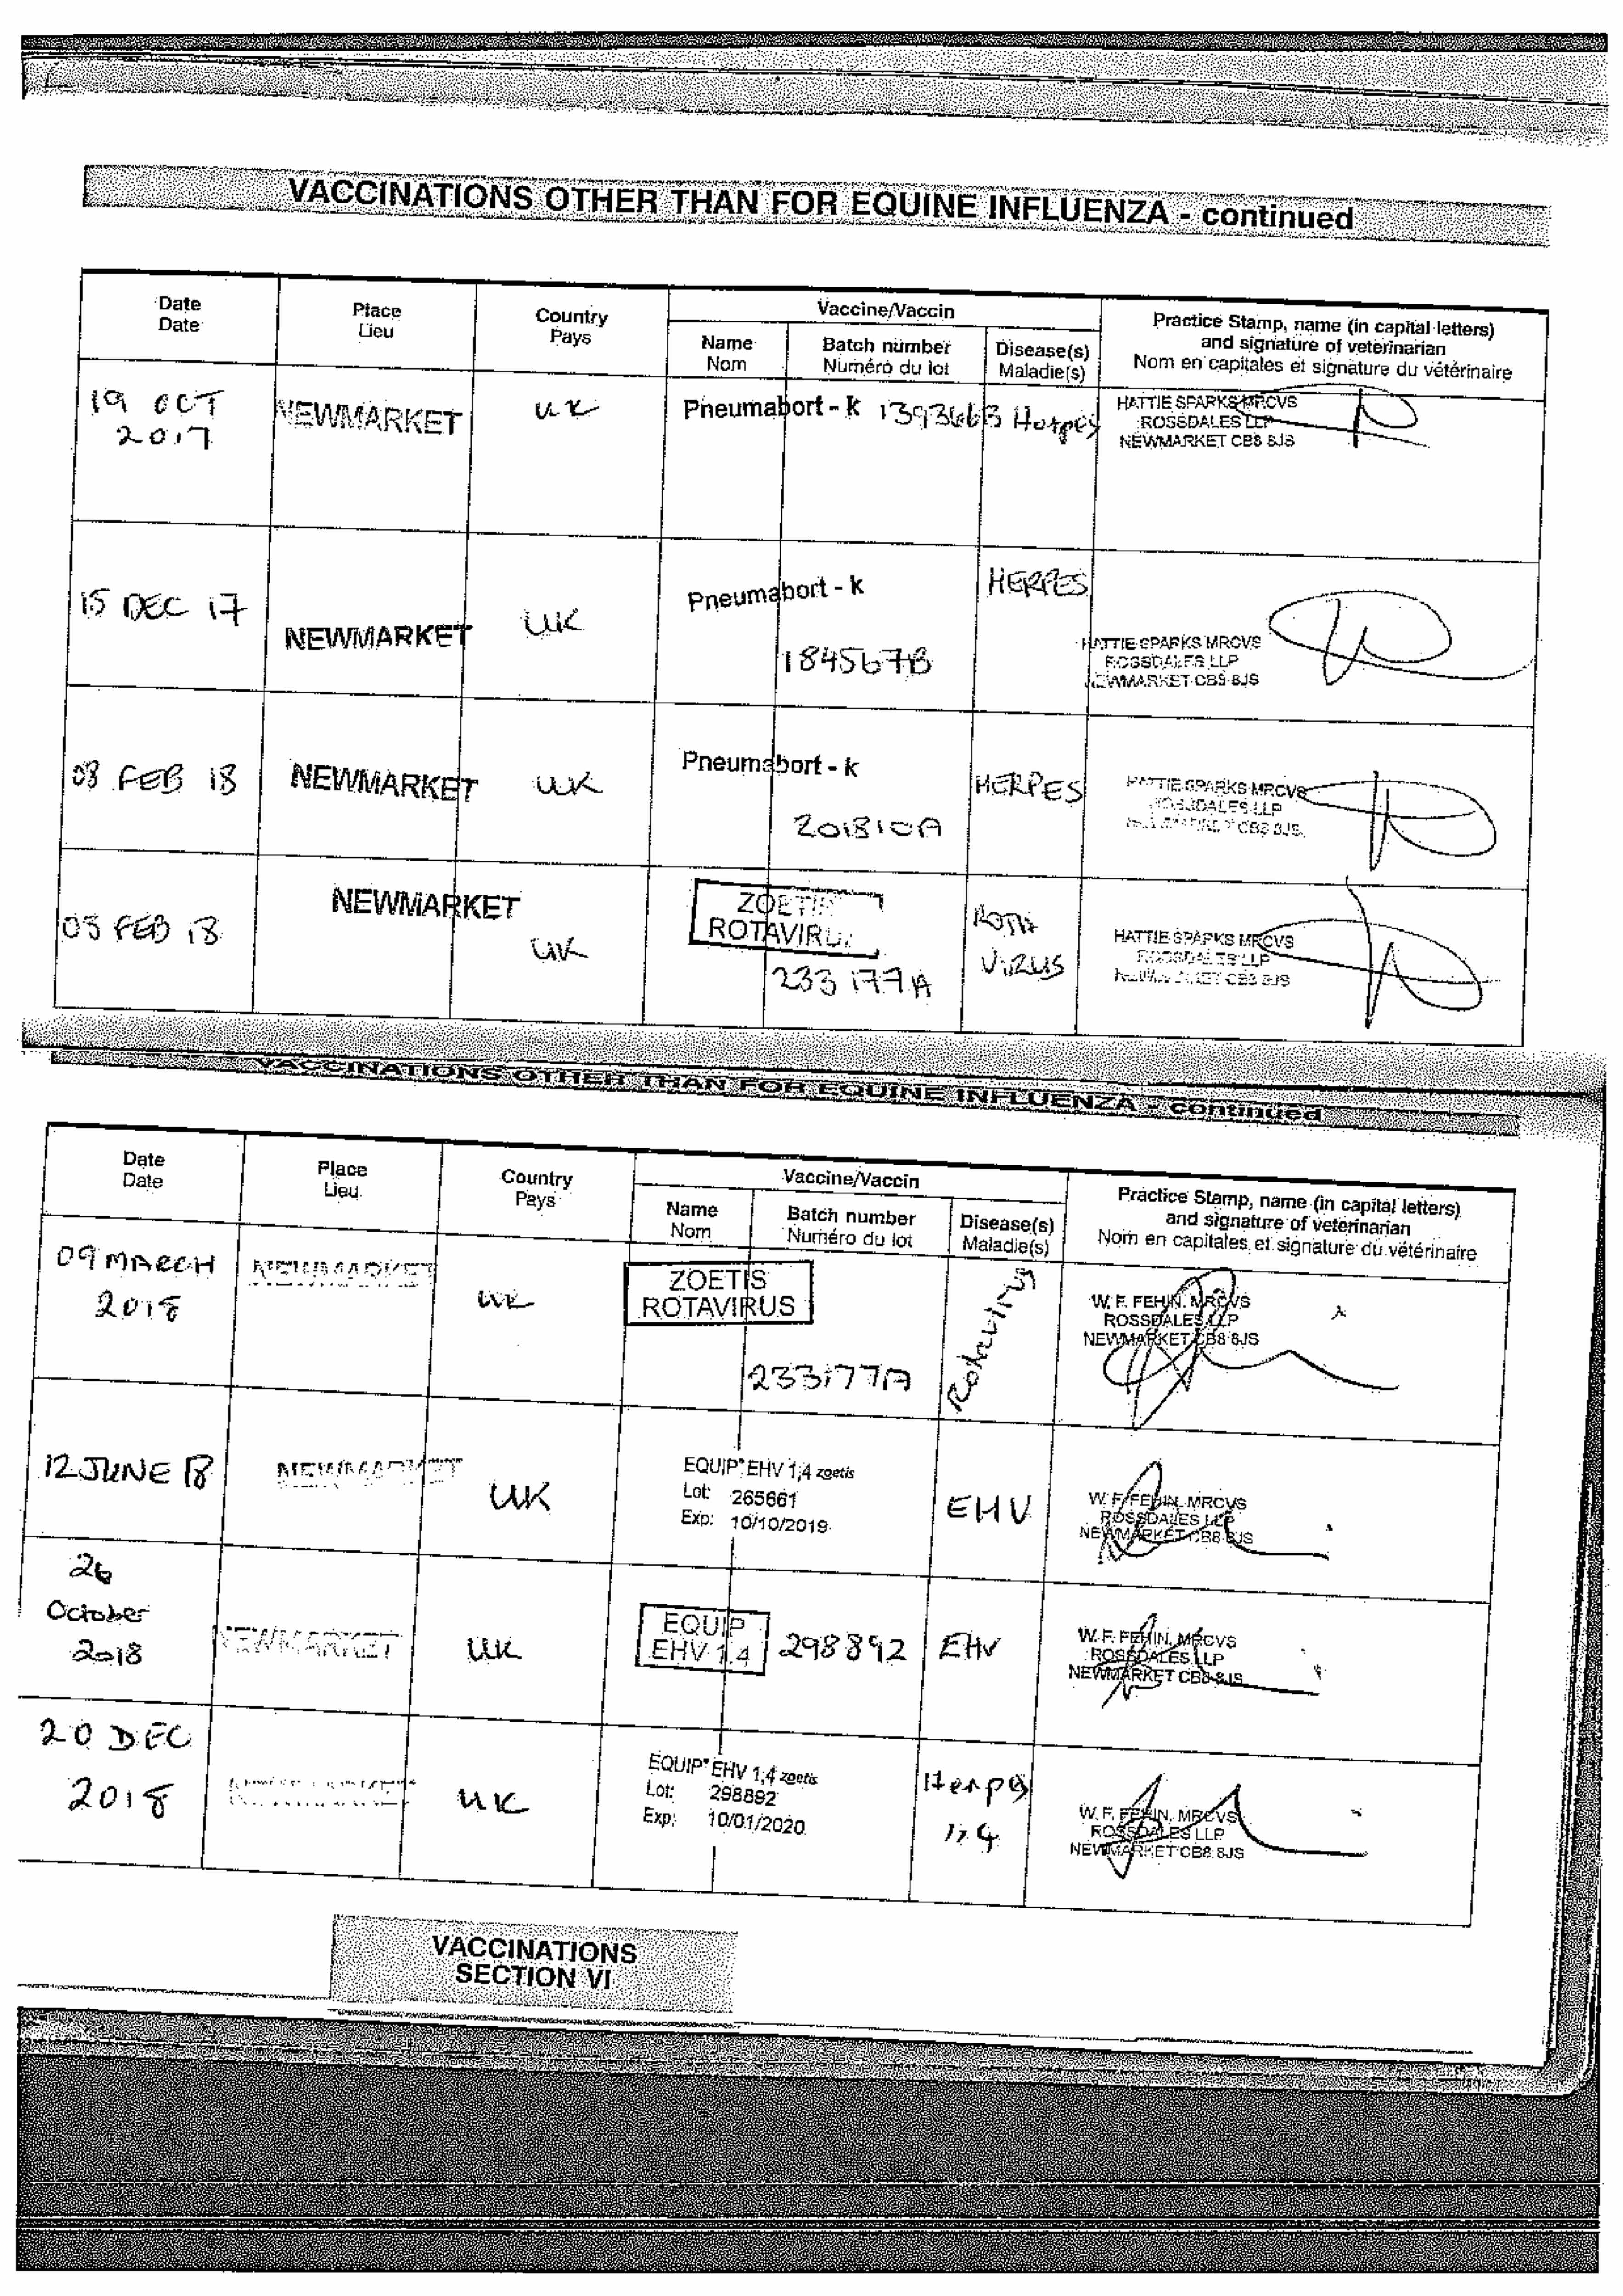 VACCINATIONS OTHER THAN FOR EQUINE INFLUENZA - continued
Date
Date
Place
Lieu
Country
Pays
Vaccine/Vaccin
Name
Nom
Batch number
Numéro du lot
Disease(s)
Maladie(s)
Practice Stamp, name (in capital letters)
and signature of veterinarian
Nom en capitales et signature du vétérinaire
19 OCT
2017
NEWMARKET
UK
Pneumabort - k
139366B
Herpes
HATTIE SPARKS MRCVS
ROSSDALES LLP
NEWMARKET CB8 8JS
15 DEC 17
NEWMARKET
UK
Pneumabort - k
184567B
HERPES
HATTIE SPARKS MRCVS
ROSSDALES LLP
NEWMARKET CB8 8JS
FEB 18
NEWMARKET
UK
Pneumabort - k
201810A
HERPES
HATTIE SPARKS MRCVS
ROSSDALES LLP
NEWMARKET CB8 8JS
FEB 18
NEWMARKET
UK
ZOETIS
ROTAVIRUS
233177A
ROTA
VIRUS
HATTIE SPARKS MRCVS
ROSSDALES LLP
NEWMARKET CB8 8JS
VACCINATIONS OTHER THAN FOR EQUINE INFLUENZA - continued
Date
Date
Place
Lieu
Country
Pays
Vaccine/Vaccin
Name
Nom
Batch number
Numéro du lot
Disease(s)
Maladie(s)
Practice Stamp, name (in capital letters)
and signature of veterinarian
Nom en capitales et signature du vétérinaire
09 MARCH
2018
NEWMARKET
UK
ZOETIS
ROTAVIRUS
233177A
Rotavirus
W. F. FEHIN. MRCVS
ROSSDALES LLP
NEWMARKET CB8 8JS
12 JUNE 18
NEWMARKET
UK
EQUIP EHV 1,4 zoetis
Lot: 265661
Exp: 10/10/2019
EHV
W. F. FEHIN. MRCVS
ROSSDALES LLP
NEWMARKET CB8 8JS
26
October
2018
NEWMARKET
UK
EQUIP
EHV 1.4
298892
EHV
W. F. FEHIN. MRCVS
ROSSDALES LLP
NEWMARKET CB8 8JS
20 DEC
2018
NEWMARKET
UK
EQUIP EHV 1,4 zoetis
Lot: 298892
Exp: 10/01/2020
Herpes
1,4
W. F. FEHIN. MRCVS
ROSSDALES LLP
NEWMARKET CB8 8JS
VACCINATIONS
SECTION VI